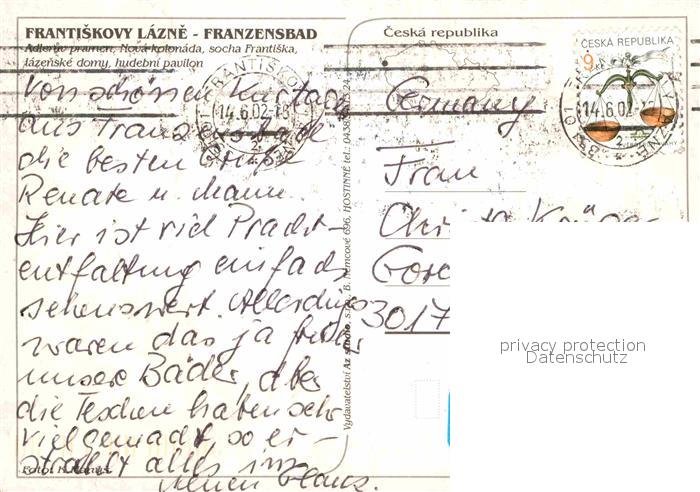 FRANTIŠKOVY LÁZNĚ - FRANZENSBAD
Adlerův pramen, Nová kolonáda, socha Františka,
lázeňské domy, hudební pavilon
Vom schönen Kurstadt
aus Franzensbad
die besten Grüße
Renate u. Mann.
Hier ist viel Pracht-
entfaltung einfach
sehenswert. Allerdings
waren das ja früher
unsere Bäder, aber
die Tschechen haben sehr
viel gemacht, so er-
strahlt alles im
neuen Glanz.
Foto:
Vydavatelství Az studio, s.r.o., B. Němcové 696, HOSTINNÉ tel.: 0438
Česká republika
Germany
Frau
Christa
3017
ČESKÁ REPUBLIKA
9
14.6.02
14.6.02
privacy protection
Datenschutz